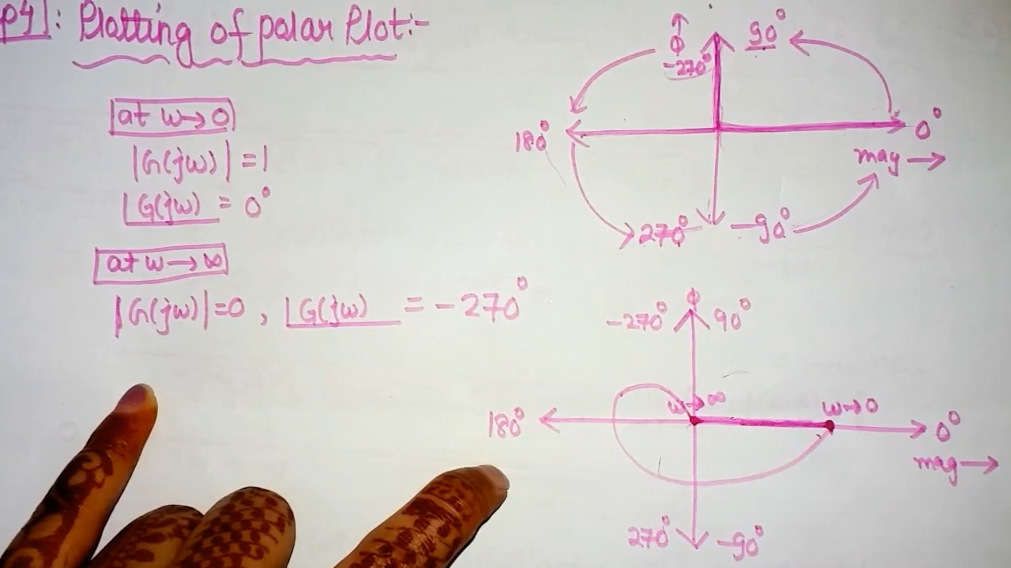 p4]: Plotting of polar Plot:-
at ω→0
|G(jω)| = 1
∠G(jω) = 0°
at ω→∞
|G(jω)|=0, ∠G(jω) = -270°
ϕ 90°
-270°
180° 0°
mag →
270° -90°
ϕ
-270° 90°
ω→∞ ω→0
180° 0°
mag →
270° -90°